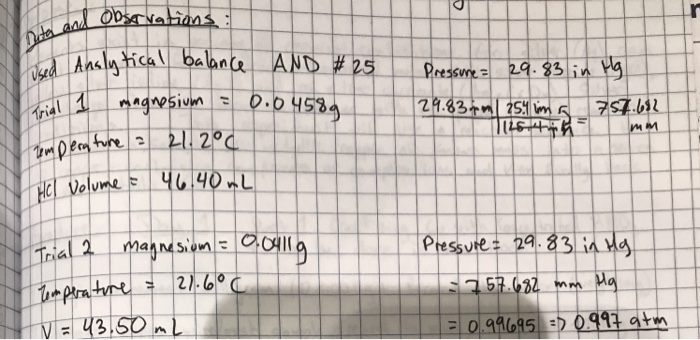 Data and Observations :
Used Analytical balance AND #25
Pressure = 29.83 in Hg
Trial 1 magnesium = 0.0458g
29.83 in 25.4 mm = 757.682 mm
Temperature = 21.2°C
HCl Volume = 46.40 mL
Trial 2 magnesium = 0.0411g
Pressure = 29.83 in Hg
Temperature = 21.6°C
= 757.682 mm Hg
V = 43.50 mL
= 0.99695 => 0.997 atm